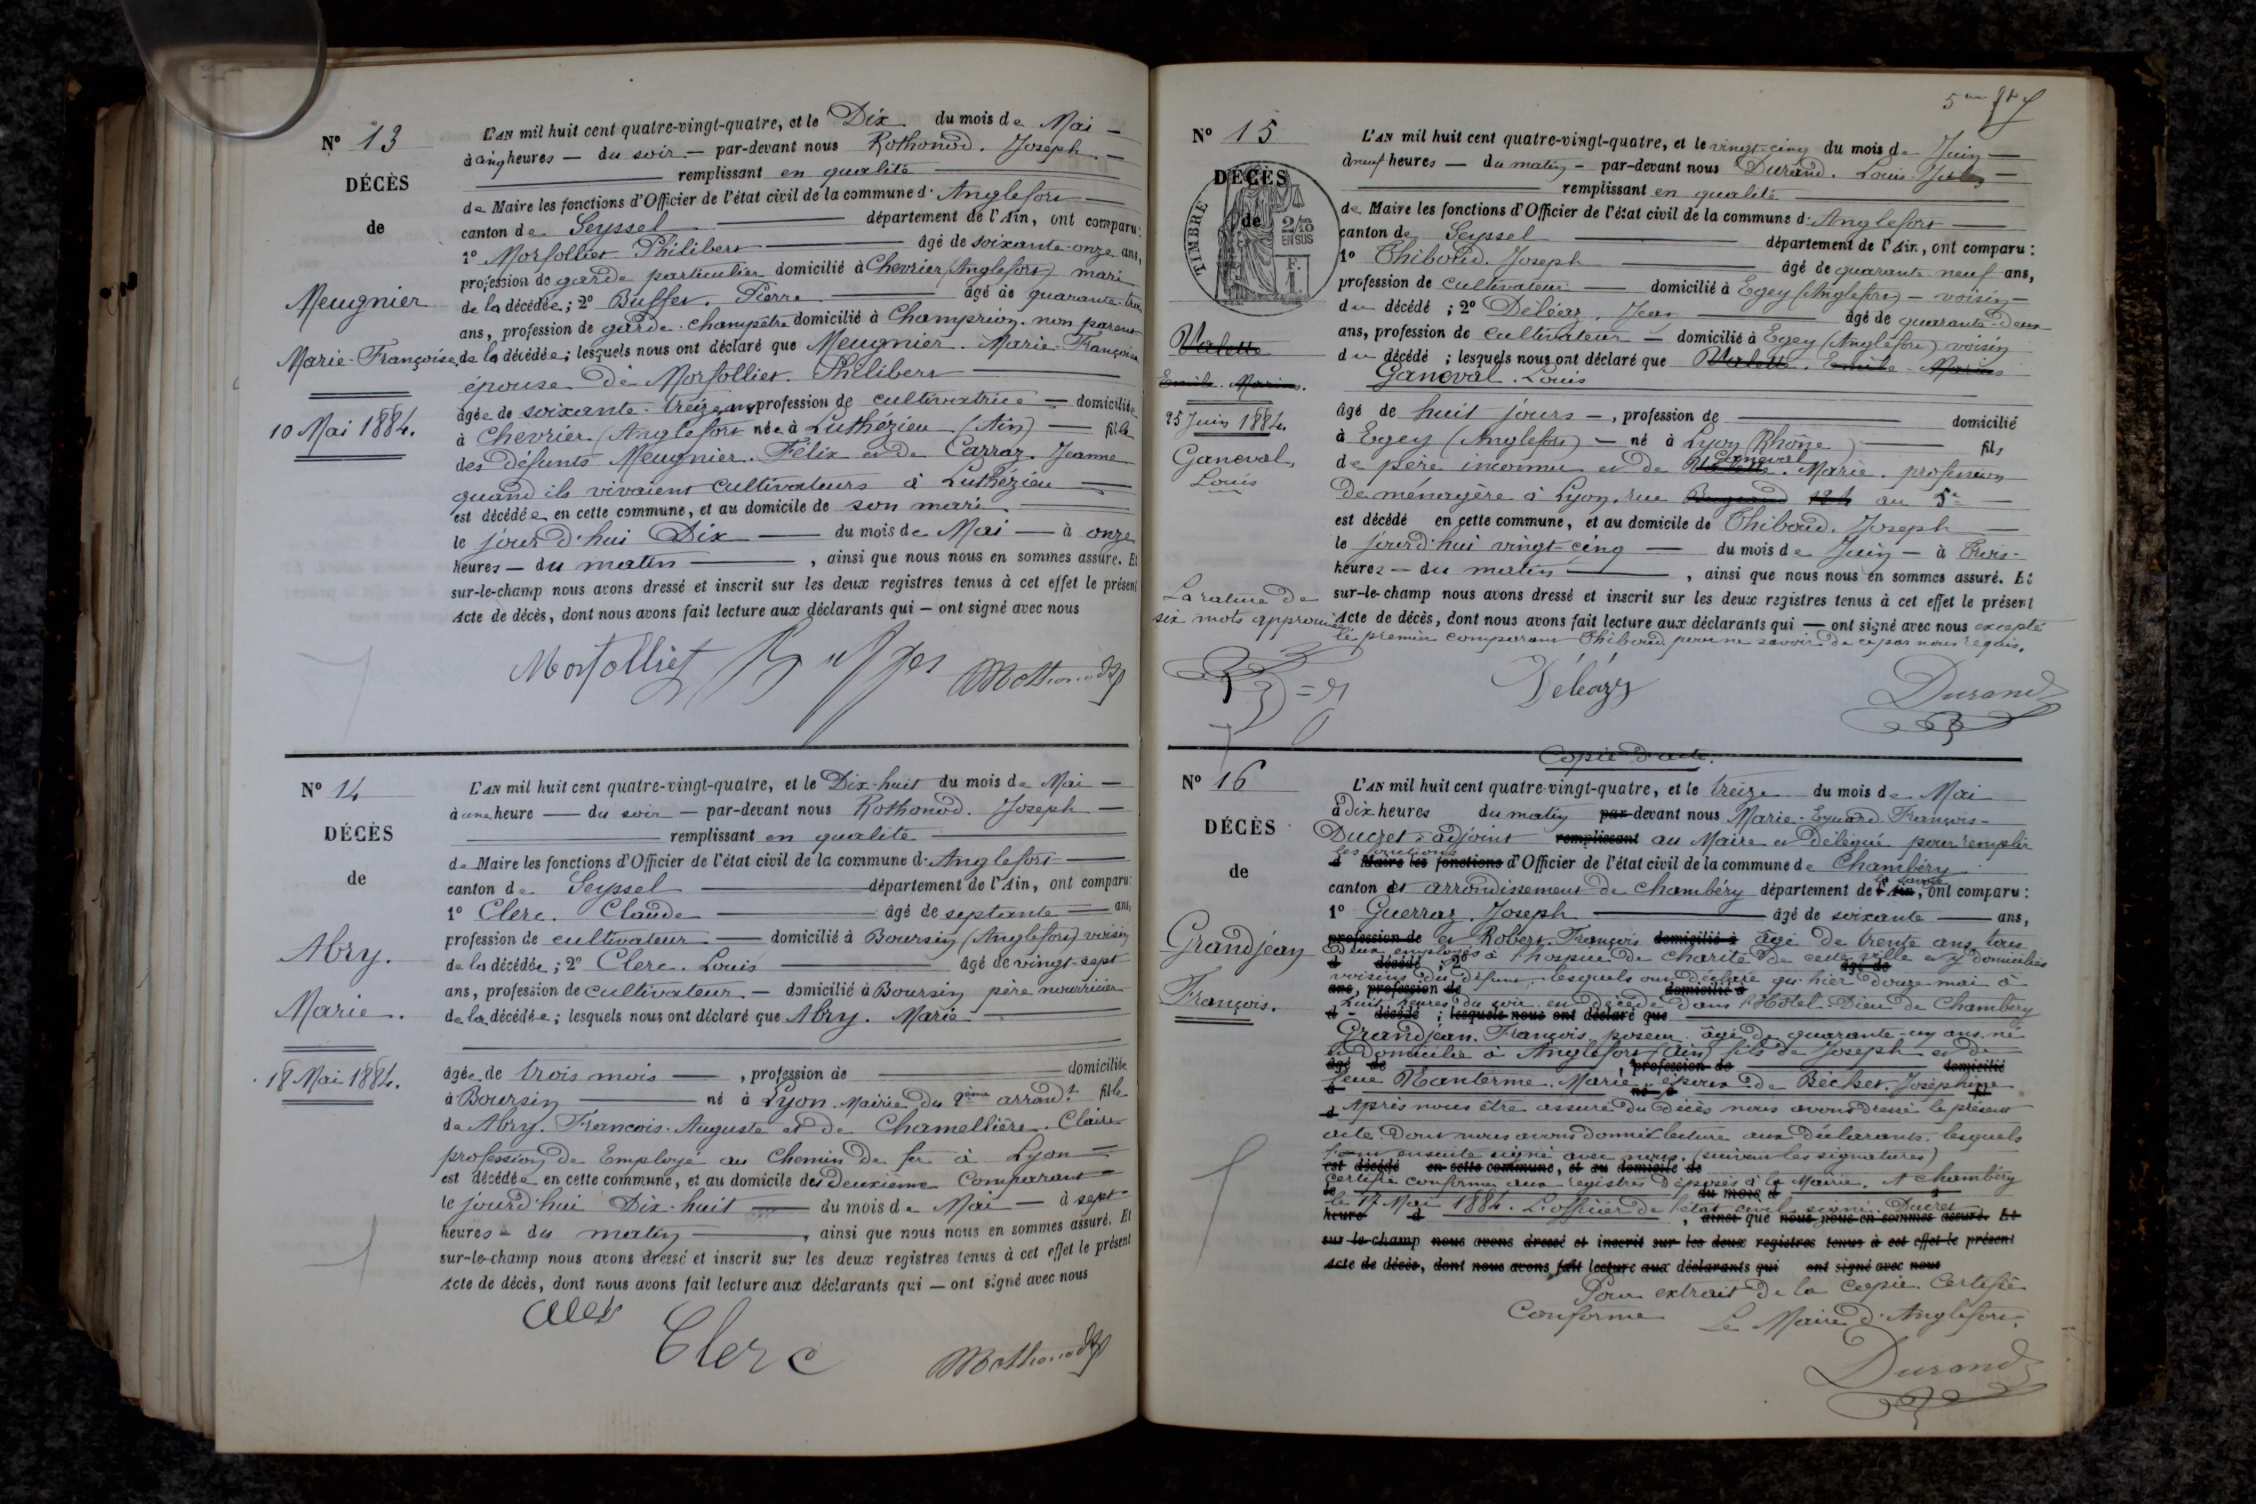 N° 13
DÉCÈS
de
Meugnier
Marie-Françoise
10 Mai 1884.
L'AN mil huit cent quatre-vingt-quatre, et le Dix du mois de Mai —
à cinq heures — du soir — par-devant nous Rothonod. Joseph —
remplissant en qualité
de Maire les fonctions d'Officier de l'état civil de la commune d'Anglefort
canton de Seyssel département de l'Ain, ont comparu:
1° Morfolliet Philibert âgé de soixante-onze ans,
profession de garde particulier domicilié à Chevrier (Anglefort) mari
de la décédée; 2° Buffet. Pierre âgé de quarante
ans, profession de garde-champêtre domicilié à Champrion non parent
de la décédée; lesquels nous ont déclaré que Meugnier. Marie-Françoise
épouse de Morfolliet. Philibert
âgée de soixante-treize ans profession de cultivatrice — domiciliée
à Chevrier (Anglefort née à Luthézieu (Ain) — fille
des défunts Meugnier. Félix et de Carraz. Jeanne
quand ils vivaient cultivateurs à Luthézieu
est décédée en cette commune, et au domicile de son mari
le jourd'hui Dix — du mois de Mai — à onze
heures — du matin — , ainsi que nous nous en sommes assuré. Et
sur-le-champ nous avons dressé et inscrit sur les deux registres tenus à cet effet le présent
Acte de décès, dont nous avons fait lecture aux déclarants qui — ont signé avec nous
Morfolliet
N° 14
DÉCÈS
de
Abry.
Marie.
18 Mai 1884.
L'AN mil huit cent quatre-vingt-quatre, et le Dix-huit du mois de Mai —
à une heure — du soir — par-devant nous Rothonod. Joseph —
remplissant en qualité
de Maire les fonctions d'Officier de l'état civil de la commune d'Anglefort
canton de Seyssel département de l'Ain, ont comparu:
1° Clerc. Claude âgé de septante — ans,
profession de cultivateur — domicilié à Boursin (Anglefort) voisin
de la décédée; 2° Clerc. Louis âgé de vingt-sept
ans, profession de cultivateur — domicilié à Boursin père nourricier
de la décédée; lesquels nous ont déclaré que Abry. Marie
âgée de trois mois — , profession de domiciliée
à Boursin né à Lyon. Mairie du 2ème arrondt fille
de Abry. Francois-Auguste et de Chamellière. Claire
profession de Employé au Chemin de fer à Lyon
est décédée en cette commune, et au domicile des Deuxieme Comparant
le jourd'hui Dix-huit — du mois de Mai — à sept
heures — du matin — , ainsi que nous nous en sommes assuré. Et
sur-le-champ nous avons dressé et inscrit sur les deux registres tenus à cet effet le présent
Acte de décès, dont nous avons fait lecture aux déclarants qui — ont signé avec nous
Clerc
N° 15
DÉCÈS
de
TIMBRE
2/10
EN SUS
Valette
Emile. Marius.
25 Juin 1884.
Ganeval,
Louis
La rature de
six mots approuvée
L'AN mil huit cent quatre-vingt-quatre, et le vingt-cinq du mois de Juin —
à neuf heures — du matin — par-devant nous Durand. Louis
remplissant en qualité
de Maire les fonctions d'Officier de l'état civil de la commune d'Anglefort
canton de Seyssel département de l'Ain, ont comparu:
1° Thiboud. Joseph âgé de quarante neuf ans,
profession de cultivateur — domicilié à Egey (Anglefort) — voisin —
du décédé ; 2° Déléaz. Jean âgé de quarante-deux
ans, profession de cultivateur — domicilié à Egey (Anglefort) voisin
du décédé ; lesquels nous ont déclaré que Valette. Emile-Marius
Ganeval. Louis
âgé de huit jours — , profession de domicilié
à Egey (Anglefort) — né à Lyon (Rhône) fils
Ganeval
de père inconnu et de Valette. Marie. profession
De ménagère à Lyon, rue au 5e
est décédé en cette commune, et au domicile de Thiboud. Joseph
le jourd'hui vingt-cinq — du mois de Juin — à trois
heures — du matin — , ainsi que nous nous en sommes assuré. Et
sur-le-champ nous avons dressé et inscrit sur les deux registres tenus à cet effet le présent
Acte de décès, dont nous avons fait lecture aux déclarants qui — ont signé avec nous excepté
le premier comparant Thiboud pour ne savoir de ce par nous requis.
Déléaz
Durand
Copie d'acte.
N° 16
DÉCÈS
de
Grandjean
François.
L'AN mil huit cent quatre-vingt-quatre, et le treize du mois de Mai
à Dix heures du matin par-devant nous Marie-Eduard François-
Ducret adjoint remplissant au Maire et délégué pour remplir
les fonctions
d Maire les fonctions d'Officier de l'état civil de la commune de Chambéry
canton et arrondissement de Chambéry département de la Savoie l'Ain, ont comparu:
1° Guerraz. Joseph âgé de soixante — ans,
profession de et Robert. François domicilié à âgé de trente ans tous
Deux employés à l'hospice de charité de cette ville et y domiciliés
d décédé ; 2° âgé de
voisins du défunt, lesquels ont déclaré qu'hier douze mai à
ans, profession de domicilié à
huit heures du soir est décédé dans l'Hôtel-Dieu de Chambéry
d décédé ; lesquels nous ont déclaré que
Grandjean. François, poseur âgé de quarante-un ans né
et domicilié à Anglefort (Ain) fils de Joseph et de
âgé de , profession de domicilié
feue Nanterme. Marie, époux de Béchet. Joséphine
à né à fil
d Après nous être assuré du décès nous avons dressé le présent
acte dont nous avons donné lecture aux déclarants. lesquels
l'ont ensuite signé avec nous. (suivent les signatures)
est décédé en cette commune, et au domicile de
Certifié conforme aux registres déposés à la Mairie. A Chambéry
le du mois d à
le 17 Mai 1884. L'officier de l'état civil signé. Ducret
heure d , ainsi que nous nous en sommes assuré. Et
sur-le-champ nous avons dressé et inscrit sur les deux registres tenus à cet effet le présent
Acte de décès, dont nous avons fait lecture aux déclarants qui ont signé avec nous
Pour extrait de la copie Certifié
Conforme Le Maire d'Anglefort.
Durand